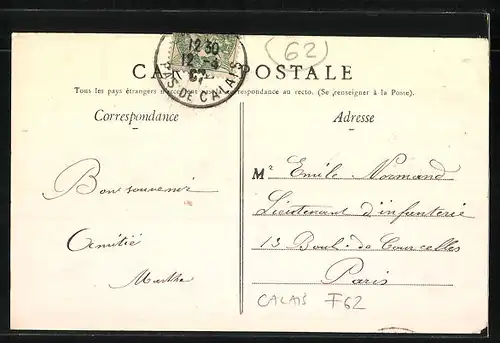 (62)
12 30
12 - 4
PAS-DE CALAIS
CA POSTALE
Tous les pays étrangers n'acceptent pas la correspondance au recto. (Se renseigner à la Poste).
Correspondance
Adresse
Bon souvenir
Amitié
Marthe
Mr Emile Normand
Lieutenant d'infanterie
13 Boul. de Courcelles
Paris
CALAIS F62